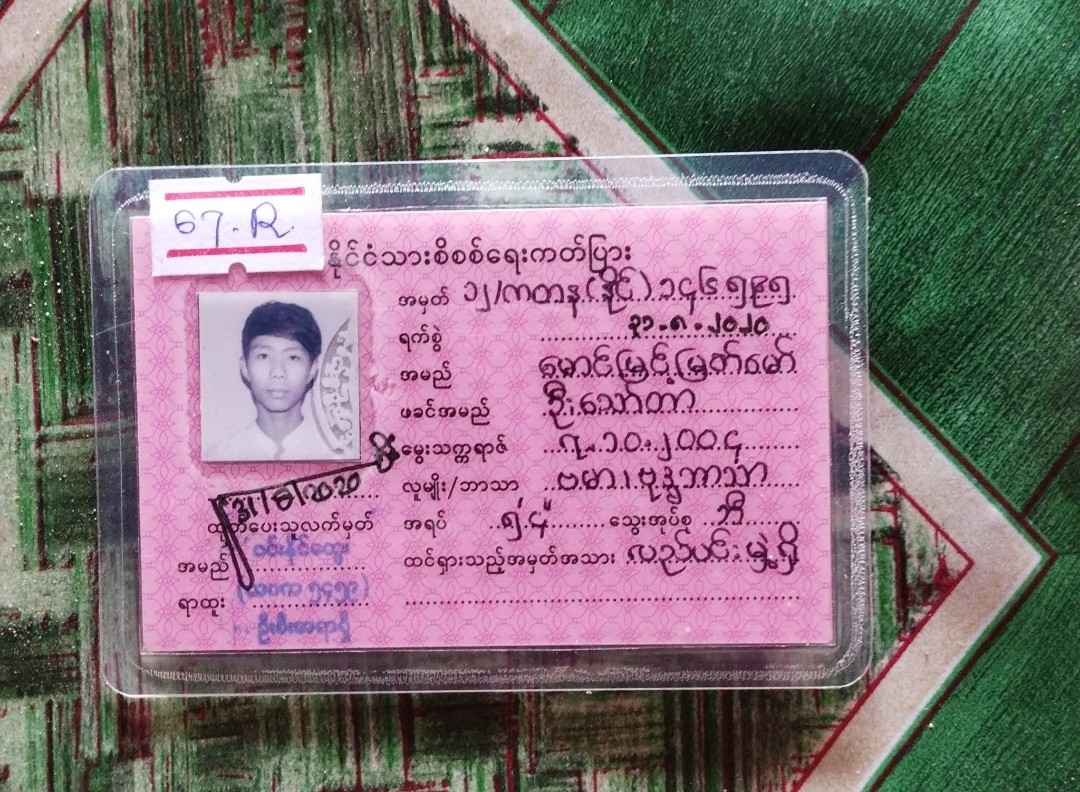 67.R
နိုင်ငံသားစိစစ်ရေးကတ်ပြား
အမှတ် ၁၂/ကတန(နိုင်)၁၄၆၅၉၅
ရက်စွဲ ၃၁.၈.၂၀၂၀
အမည် မောင်မြင့်မြတ်မော်
ဖခင်အမည် ဦးသော်တာ
မွေးသက္ကရာဇ် ၇.၁၀.၂၀၀၄
လူမျိုး/ဘာသာ ဗမာ၊ဗုဒ္ဓဘာသာ
အရပ် ၅'၄" သွေးအုပ်စု ဘီ
ထင်ရှားသည့်အမှတ်အသား လည်ပင်းမှဲ့ရှိ
31/8/2020
ထုတ်ပေးသူလက်မှတ်
အမည် ဝင်းနိုင်ထွေး
(လဝက ၅၄၅၉)
ရာထူး ဦးစီးအရာရှိ